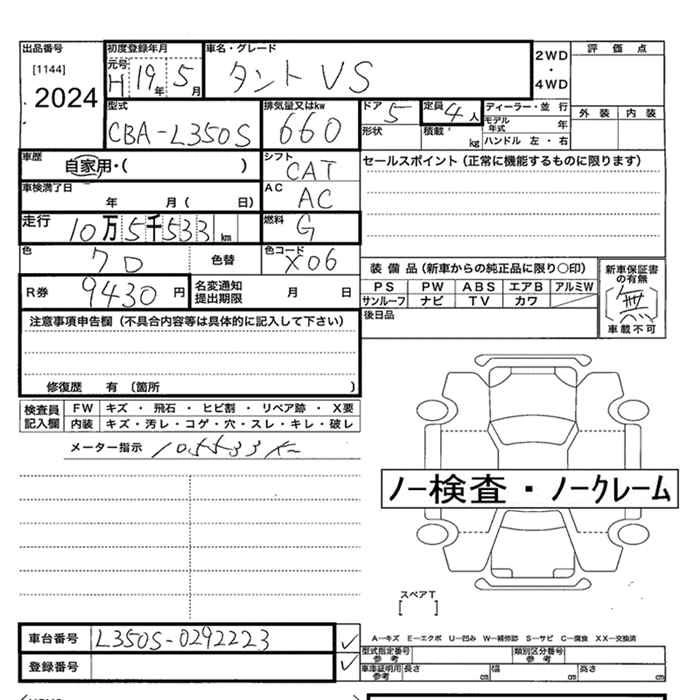 出品番号 初度登録年月 車名・グレード 2WD・4WD 評価点
[1144] 元号 H 19年 5月 タント VS
2024
型式 排気量又はkw ドア 5 定員 4人 ディーラー・並行 外装 内装
CBA-L350S 660 形状 積載 kg モデル年式 年
ハンドル 左・右
車歴 自家用・( ) シフト CAT セールスポイント(正常に機能するものに限ります)
車検満了日 年 月( 日) AC AC
走行 10万5千533km 燃料 G
色 色替 色コード X06 装備品(新車からの純正品に限り○印) 新車保証書の有無
PS PW ABS エアB アルミW 無
R券 9430円 名変通知提出期限 月 日 サンルーフ ナビ TV カワ
後日品 車載不可
注意事項申告欄(不具合内容等は具体的に記入して下さい)
修復歴 有〔箇所 )
検査員記入欄 FW キズ・飛石・ヒビ割・リペア跡・X要
内装 キズ・汚レ・コゲ・穴・スレ・キレ・破レ
メーター指示 105533K
ノー検査・ノークレーム
スペアT
[ ]
車台番号 L350S-0292223 ✓
A−キズ E−エクボ U−凹み W−補修跡 S−サビ C−腐食 XX−交換済
型式指定番号参考 類別区分番号参考
登録番号 ✓ 車庫証明用参考 長さ cm 幅 cm 高さ cm